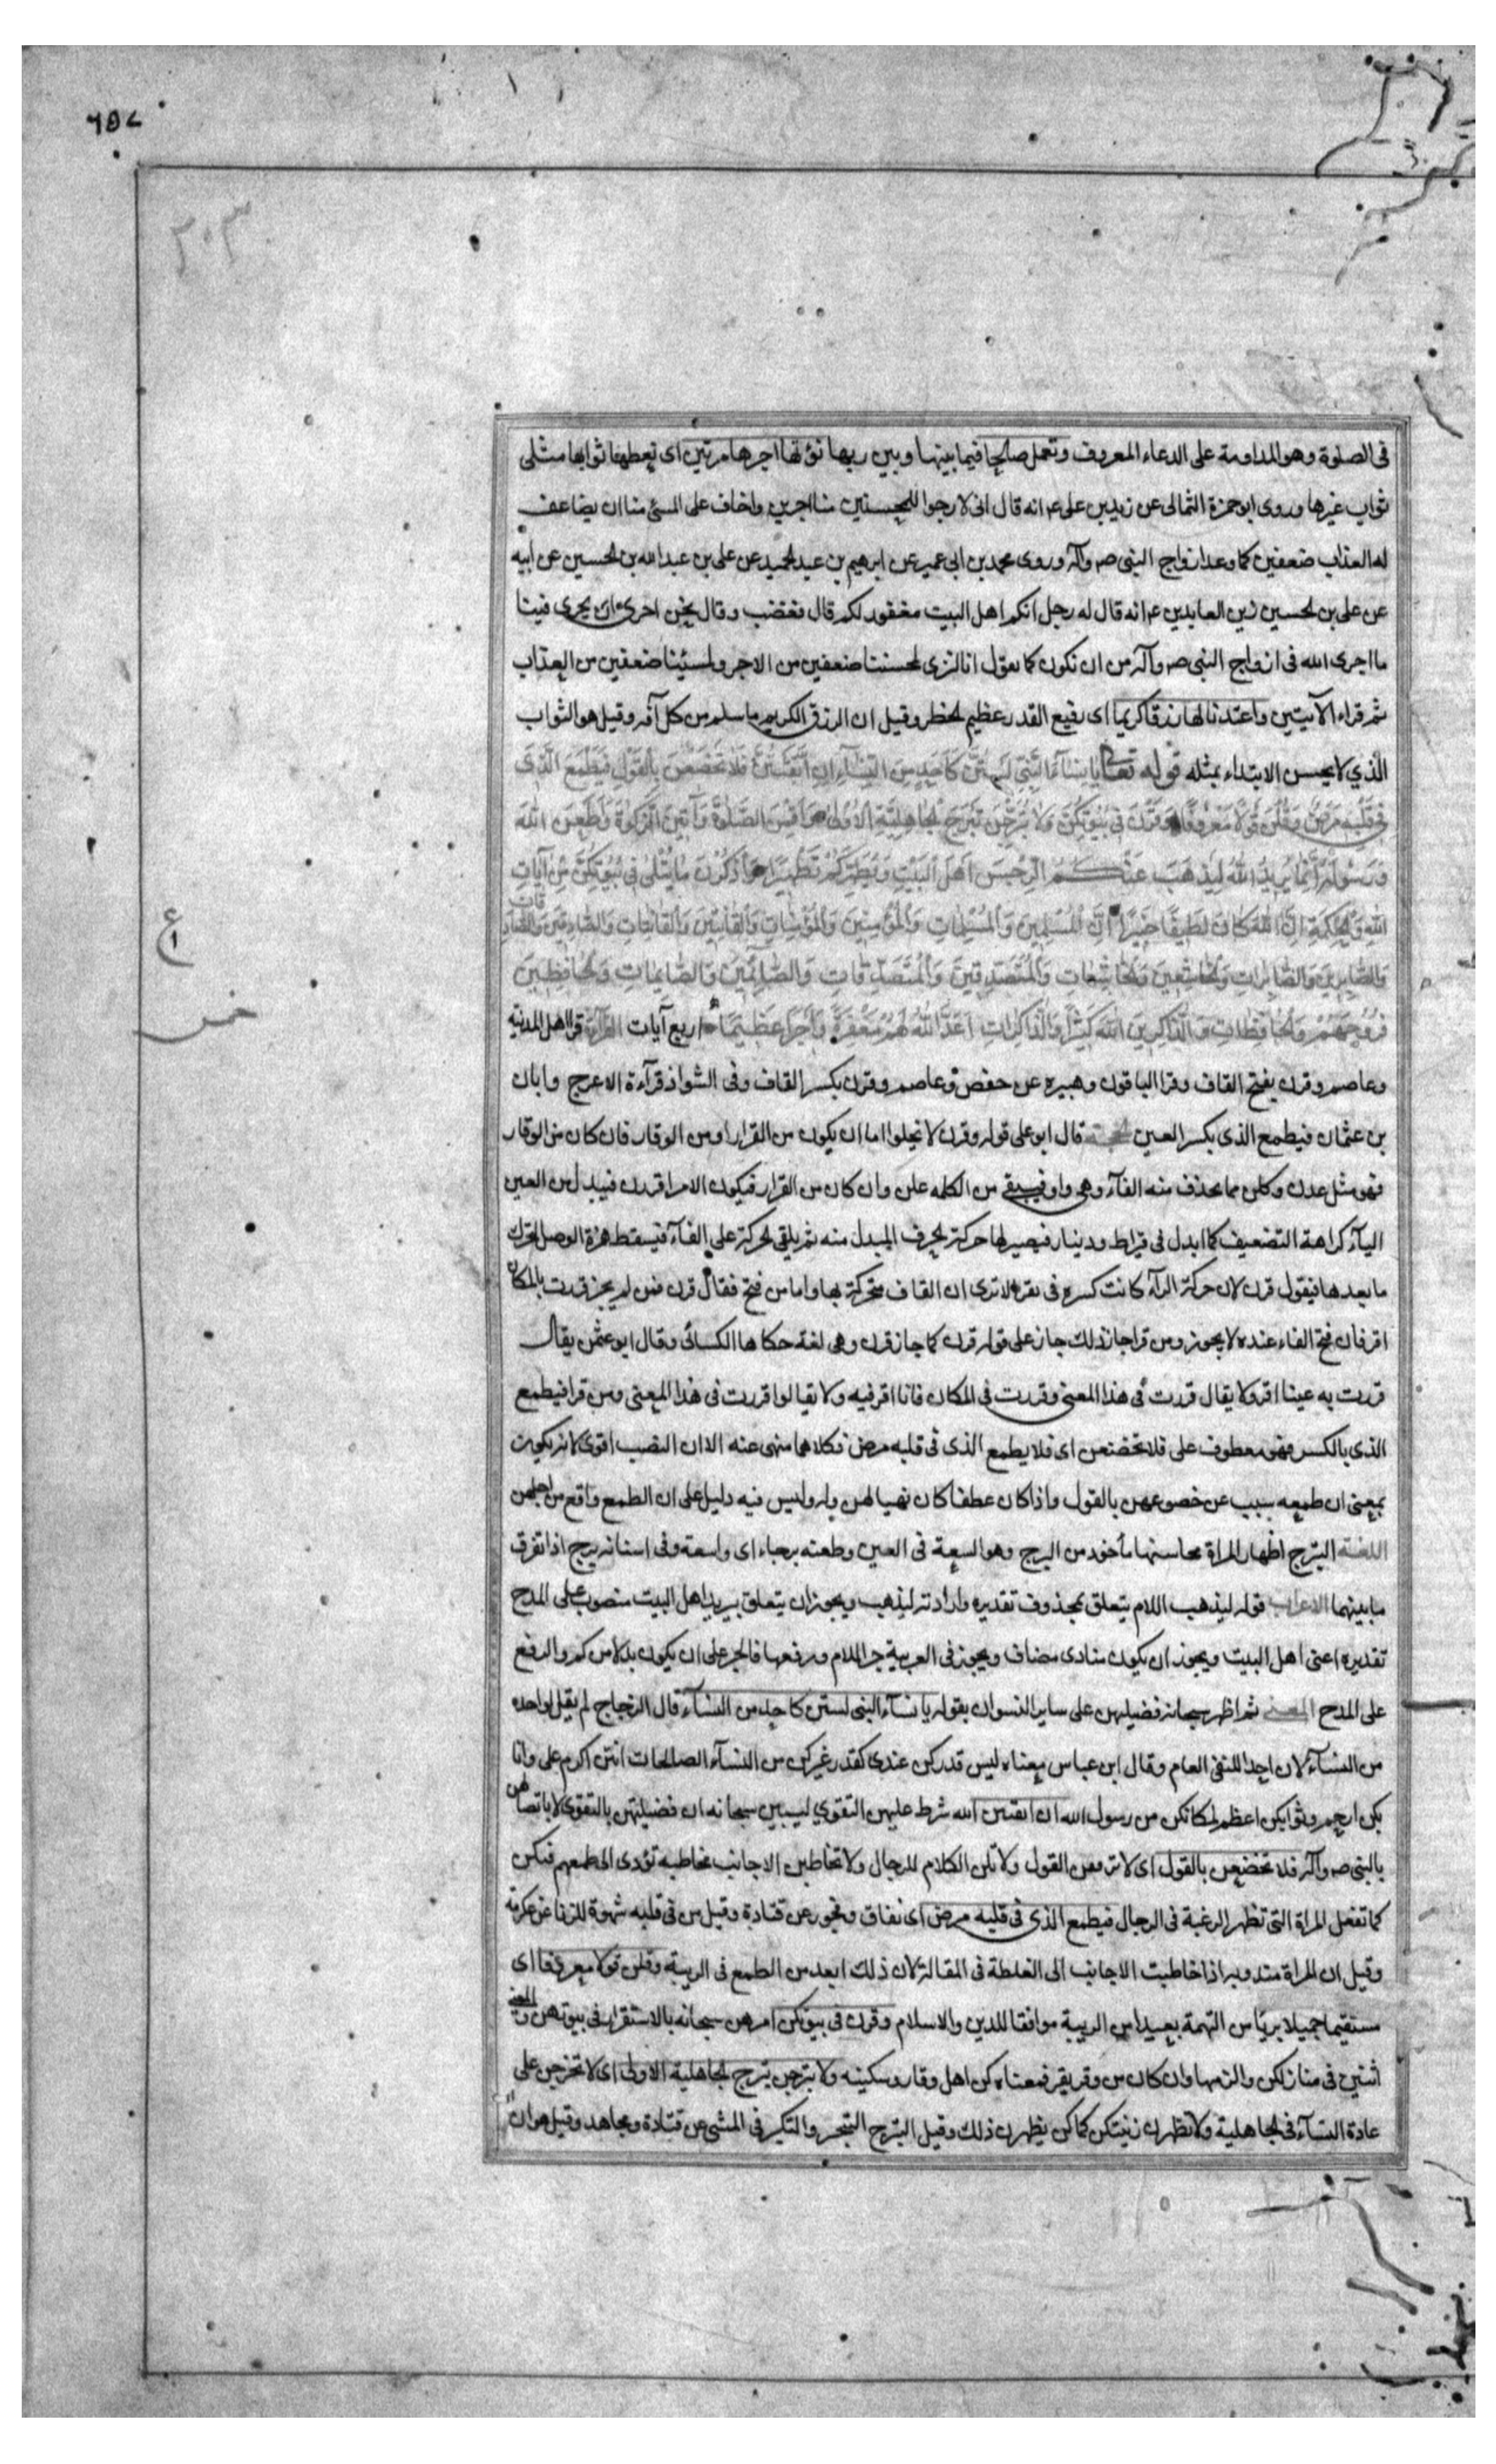 ٦٥٧
٣٠٣
فى الصلوة وهو المداومة على الدعاء المعروف وتعمل صالحا فيما بينها وبين ربها نؤتها اجرها مرتين اى نعطها ثوابها مثلى
ثواب غيرها وروى ابو حمزة الثمالى عن زيد بن على ع انه قال انى لارجوا للمحسنين منا اجرين واخاف على المسئ منا ان يضاعف
له العذاب ضعفين كما وعد ازواج النبى ص وآله وروى محمد بن ابى عمير عن ابرهيم بن عبد الحميد عن على بن عبد الله بن الحسين عن ابيه
عن على بن الحسين زين العابدين ع انه قال له رجل انكم اهل البيت مغفور لكم قال فغضب وقال نحن احرى ان يجرى فينا
ما اجرى الله فى ازواج النبى ص وآله من ان نكون كما تقول انا لنرى لمحسننا ضعفين من الاجر ولمسيئنا ضعفين من العذاب
ثم قراء الآيتين واعتدنا لها رزقا كريما اى رفيع القدر عظيم الخطر وقيل ان الرزق الكريم ما سلم من كل آفه وقيل هو الثواب
الذي لا يحسن الابتداء بمثله قوله تعالى يَا نِسَاءَ النَّبِيِّ لَسْتُنَّ كَأَحَدٍ مِنَ النِّسَآءِ اِنِ اتَّقَيْتُنَّ فَلَا تَخْضَعْنَ بِالْقَوْلِ فَيَطْمَعَ الَّذِى
فِى قَلْبِهِ مَرَضٌ وَقُلْنَ قَوْلًا مَعْرُوفًا وَقَرْنَ فِى بُيُوتِكُنَّ وَلَا تَبَرَّجْنَ تَبَرُّجَ الْجَاهِلِيَّةِ الْاُولَى وَاَقِمْنَ الصَّلٰوةَ وَآتِينَ الزَّكٰوةَ وَاَطِعْنَ اللهَ
وَرَسُولَهُ اِنَّمَا يُرِيدُ اللهُ لِيُذْهِبَ عَنْكُمُ الرِّجْسَ اَهْلَ الْبَيْتِ وَيُطَهِّرَكُمْ تَطْهِيرًا وَاذْكُرْنَ مَا يُتْلَى فِى بُيُوتِكُنَّ مِنْ آيَاتِ
اللهِ وَالْحِكْمَةِ اِنَّ اللهَ كَانَ لَطِيفًا خَبِيرًا اِنَّ الْمُسْلِمِينَ وَالْمُسْلِمَاتِ وَالْمُؤْمِنِينَ وَالْمُؤْمِنَاتِ وَالْقَانِتِينَ وَالْقَانِتَاتِ وَالصَّادِقِينَ وَالصَّادِقَاتِ
وَالصَّابِرِينَ وَالصَّابِرَاتِ وَالْخَاشِعِينَ وَالْخَاشِعَاتِ وَالْمُتَصَدِّقِينَ وَالْمُتَصَدِّقَاتِ وَالصَّائِمِينَ وَالصَّائِمَاتِ وَالْحَافِظِينَ
فُرُوجَهُمْ وَالْحَافِظَاتِ وَالذَّاكِرِينَ اللهَ كَثِيرًا وَالذَّاكِرَاتِ اَعَدَّ اللهُ لَهُمْ مَغْفِرَةً وَاَجْرًا عَظِيمًا اربع آيات القراءة قرا اهل المدينة
وعاصم وقرن بفتح القاف وقرا الباقون وهبيره عن حفص عن عاصم وقرن بكسر القاف وفى الشواذ قرآءة الاعرج وابان
بن عثمان فيطمع الذى بكسر العين الحجة قال ابو على قوله وقرن لا يخلوا اما ان يكون من القرار او من الوقار فان كان من الوقار
فهو مثل عدن وكلن مما يحذف منه الفآء وهى واو فيبقى من الكلمه علن وان كان من القرار فيكون الامر اقررن فيبدل من العين
اليآء كراهة التضعيف كما ابدل فى قيراط ودينار فيصير لها حركة الحرف المبدل منه ثم يلقى الحركة على الفآء فيسقط همزة الوصل لتحرك
ما بعدها فيقول قرن لان حركة الرآء كانت كسره فى تقره الا ترى ان القاف متحركة بها واما من فتح فقال قرن فمن لم يجز قررت بالمكان
اقر فان فتح الفاء عنده لا يجوز ومن اجاز ذلك جاز على قوله قرن كما جاز قرن وهى لغة حكاها الكسائى وقال ابو عثمن يقال
قررت به عينا اقر ولا يقال قررت فى هذا المعنى وقررت فى المكان فانا اقر فيه ولا يقالوا قررت فى هذا المعنى ومن قرا فيطمع
الذى بالكسر فهو معطوف على فلا تخضعن اى فلا يطمع الذى فى قلبه مرض فكلاهما منهى عنه الا ان النصب اقوى لانه يكون
بمعنى ان طمعه بسبب عن خضوعهن بالقول واذا كان عطفا كان نهيا لهن وله وليس فيه دليل على ان الطمع واقع من اجلهن
اللغة التبرج اظهار المراة محاسنها مأخوذ من البرج وهو السعة فى العين وطعنه برجاء اى واسعة وفى اسنانه برج اذا تفرق
ما بينهما الاعراب قوله ليذهب اللام يتعلق بمحذوف تقديره وارادته ليذهب ويجوز ان يتعلق بيريد اهل البيت منصوب على المدح
تقديره اعنى اهل البيت ويجوز ان يكون منادى مضاف ويجوز فى العربية جر اللام ورفعها فالجر على ان يكون بدلا من كم والرفع
على المدح المعنى ثم اظهر سبحانه فضيلتهن على ساير النسوان بقوله يا نسآء النبى لستن كاحد من النسآء قال الزجاج لم يقل كواحده
من النسآء لان احدا للنفى العام وقال ابن عباس معناه ليس قدركن عندى كقدر غيركن من النسآء الصالحات انتن اكرم على وانا
بكن ارحم وثوابكن اعظم لمكانكن من رسول الله ان اتقيتن الله شرط عليهن التقوي ليبين سبحانه ان فضيلتهن بالتقوى لا باتصالهن
بالنبى ص وآله فلا تخضعن بالقول اى لا ترققن القول ولا تلن الكلام للرجال ولا تخاطبن الاجانب مخاطبه تؤدى الى طمعهم فتكن
كما تفعل المراة التى تظهر الرغبة فى الرجال فيطمع الذى فى قلبه مرض اى نفاق وفجور عن قتادة وقيل من فى قلبه شهوة للزنا عن عكرمة
وقيل ان المراة مندوبه اذا خاطبت الاجانب الى الغلظة فى المقالة لان ذلك ابعد من الطمع فى الريبة وقلن قولا معروفا اى
مستقيما جميلا بريًا من التهمة بعيدا من الريبة موافقا للدين والاسلام وقرن فى بيوتكن امرهن سبحانه بالاستقرار فى بيوتهن والمعنى
اثبتن فى منازلكن والزمنها وان كان من وقر يقر فمعناه كن اهل وقار وسكينه ولا تبرجن تبرج الجاهلية الاولى اى لا تخرجن على
عادة النسآء فى الجاهلية ولا تظهرن زينتكن كما كن يظهرن ذلك وقيل التبرج التبختر والتكبر فى المشى عن قتادة ومجاهد وقيل هو ان
ع
خمس